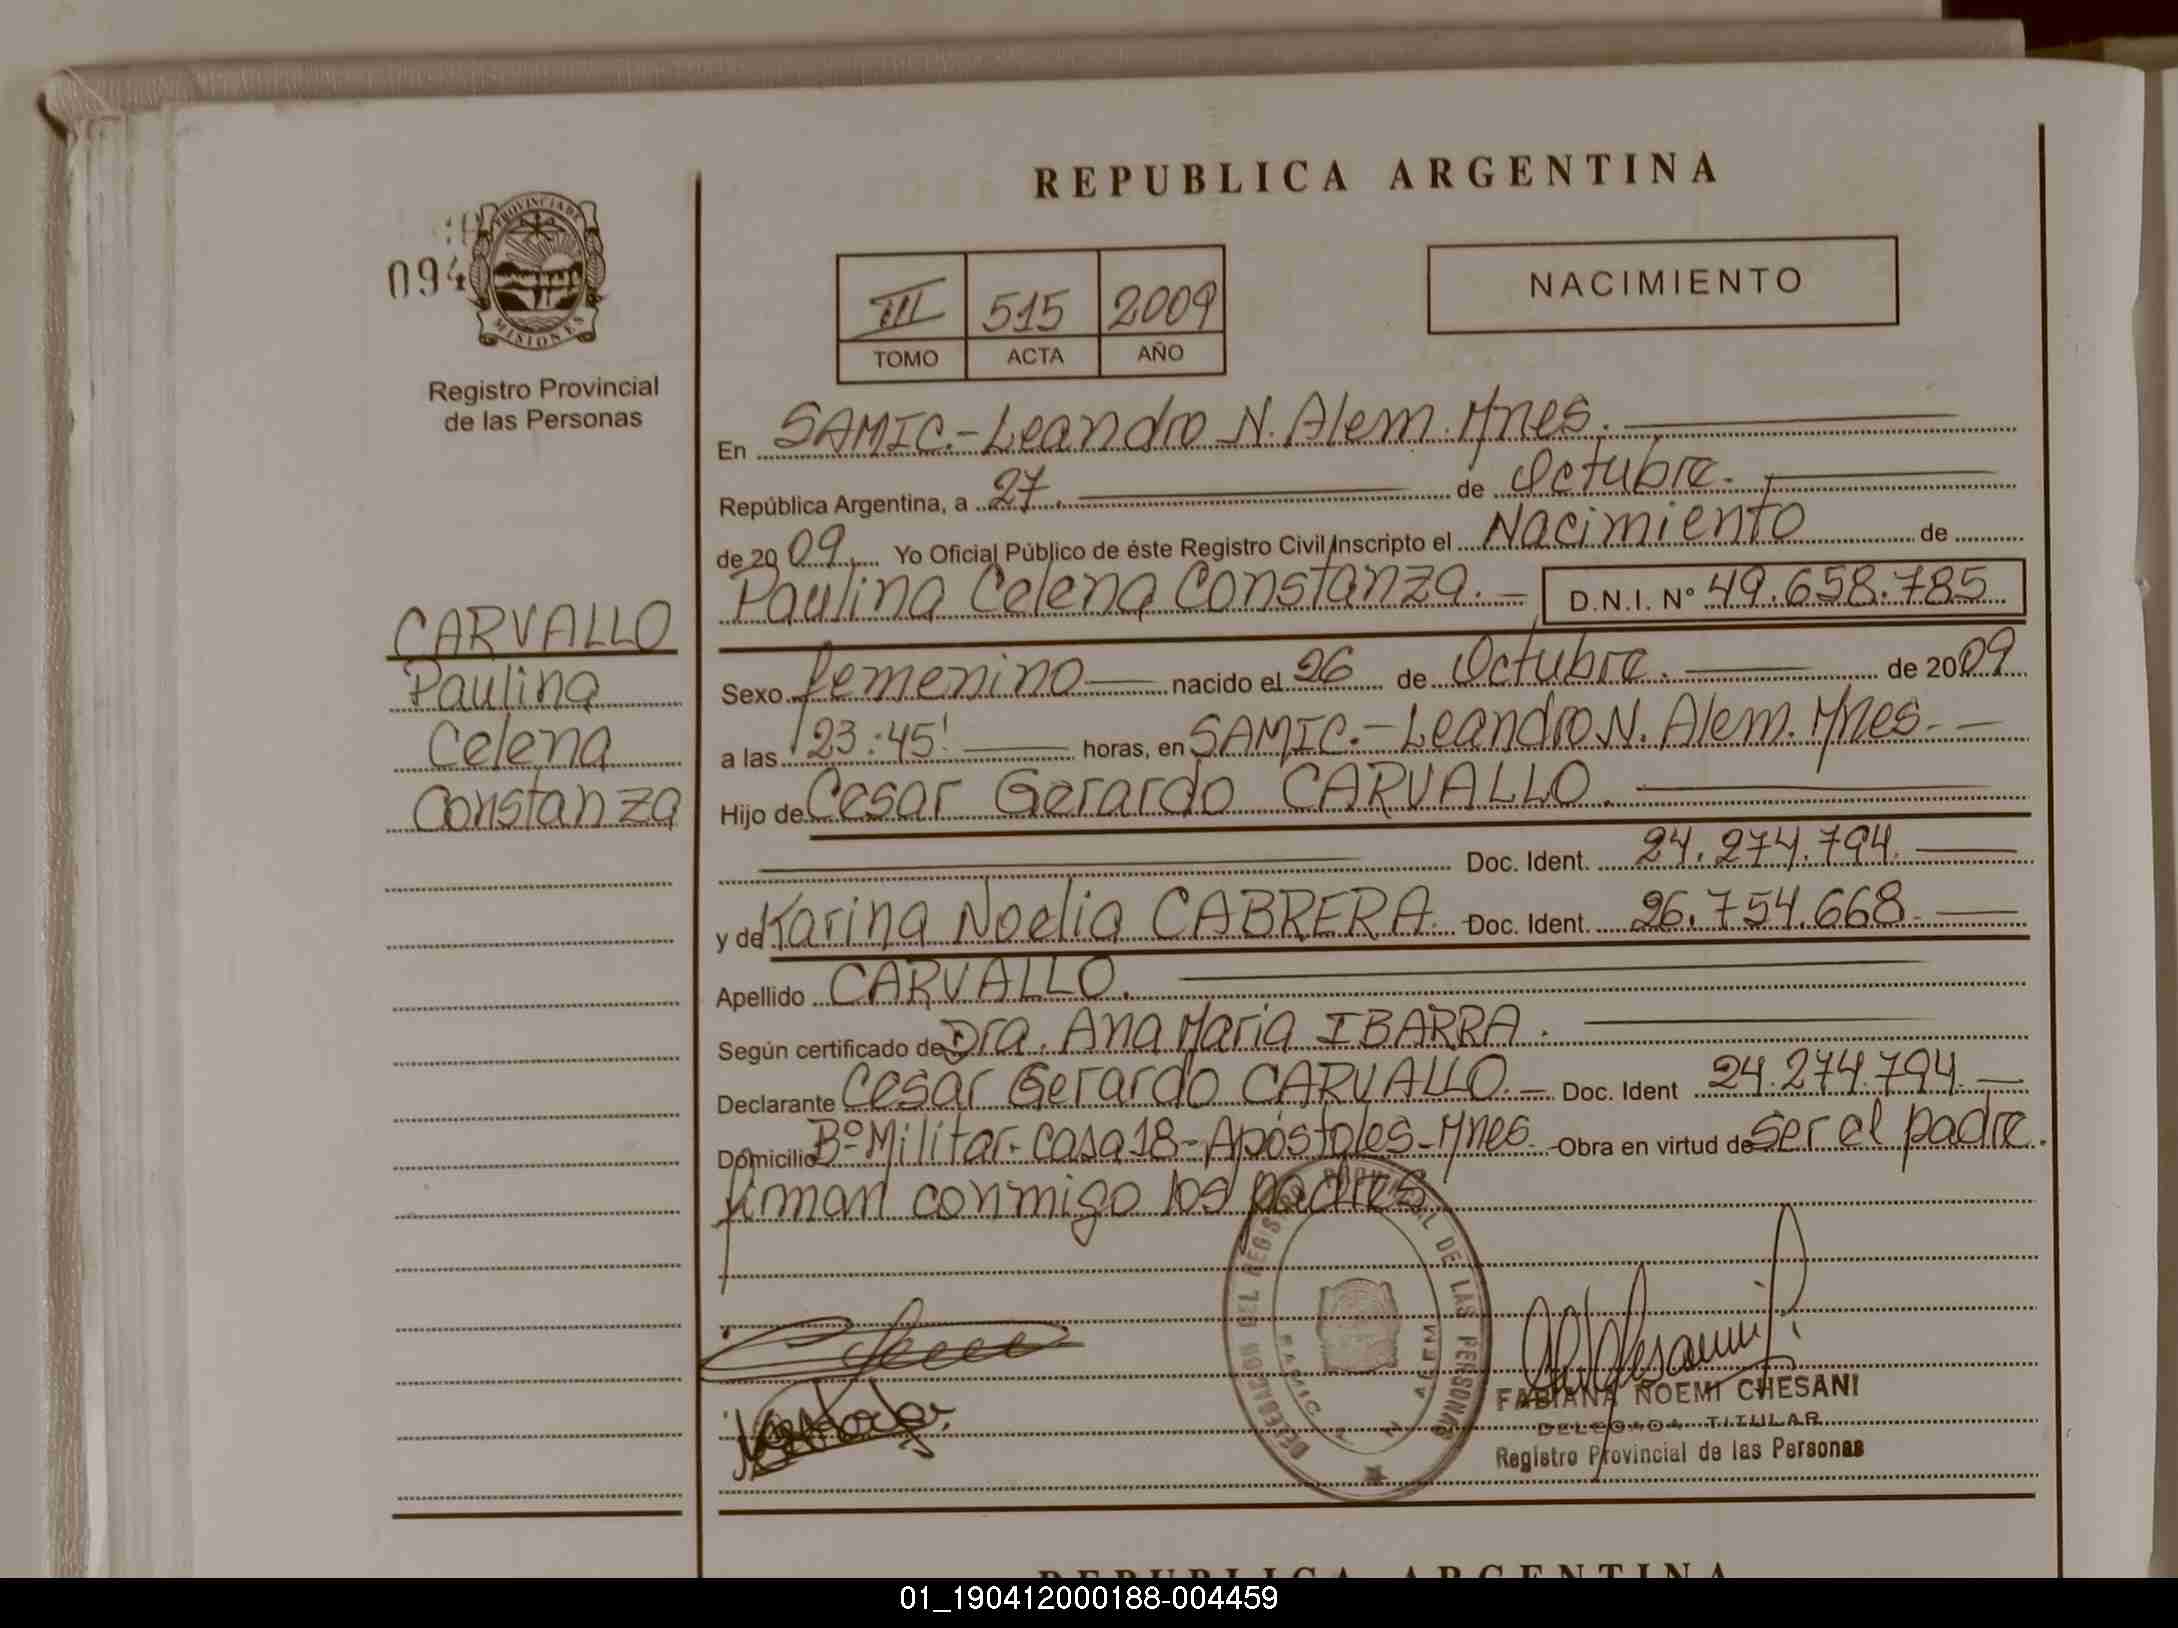 REPUBLICA ARGENTINA
094
PROVINCIA DE
MISIONES
Registro Provincial
de las Personas
III 515 2009
TOMO ACTA AÑO
NACIMIENTO
En SAMIC.-Leandro N. Alem. Mnes.
República Argentina, a 27. de Octubre.
de 2009. Yo Oficial Público de éste Registro Civil Inscripto el Nacimiento de
Paulina Celena Constanza. D.N.I. N° 49.658.785
CARVALLO
Paulina
Celena
Constanza
Sexo femenino nacido el 26 de Octubre. de 2009
a las 23:45' horas, en SAMIC.-Leandro N. Alem. Mnes-
Hijo de Cesar Gerardo CARVALLO.
Doc. Ident. 24.274.794.
y de Karina Noelia CABRERA. Doc. Ident. 26.754.668.
Apellido CARVALLO.
Según certificado de Dra. Ana Maria IBARRA.
Declarante Cesar Gerardo CARVALLO. Doc. Ident 24.274.794.
Domicilio B° Militar- Casa 18-Apóstoles-Mnes. Obra en virtud de ser el padre.
firman conmigo los padres
DELEGACION DEL REGISTRO PROVINCIAL DE LAS PERSONAS
SAMIC ALEM
FABIANA NOEMI CHESANI
DELEGADA TITULAR
Registro Provincial de las Personas
REPUBLICA ARGENTINA
01_190412000188-004459